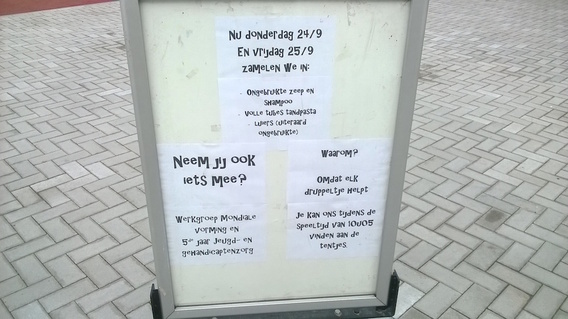 Nu donderdag 24/9
En vrijdag 25/9
zamelen we in:
- Ongebruikte zeep en
shampoo
- Volle tubes tandpasta
- Luiers (uiteraard
ongebruikte)
Neem jij ook
iets mee?
Werkgroep Mondiale
Vorming en
5de jaar Jeugd- en
gehandicaptenzorg
Waarom?
Omdat elk
druppeltje helpt
Je kan ons tijdens de
speeltijd van 10u05
vinden aan de
tentjes.